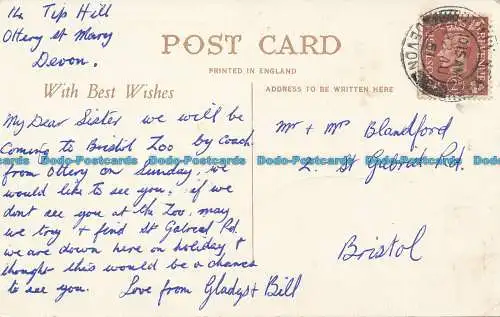 14 Tip Hill
Ottery St Mary
Devon.
POST CARD
PRINTED IN ENGLAND
With Best Wishes
ADDRESS TO BE WRITTEN HERE
My Dear Sister we will be
coming to Bristol Zoo by coach
from Ottery on Sunday, we
would like to see you, if we
dont see you at the Zoo, may
we try + find St Gabriel Rd.
we are down here on holiday &
thought this would be a chance
to see you. Love from Gladys + Bill
Mr + Mrs Blandford
2. St Gabriel Rd.
Bristol
DEVON
POSTAGE REVENUE
Dodo-Postcards Dodo-Postcards Dodo-Postcards Dodo-Postcards Dodo-Postcards Dodo-Postcards